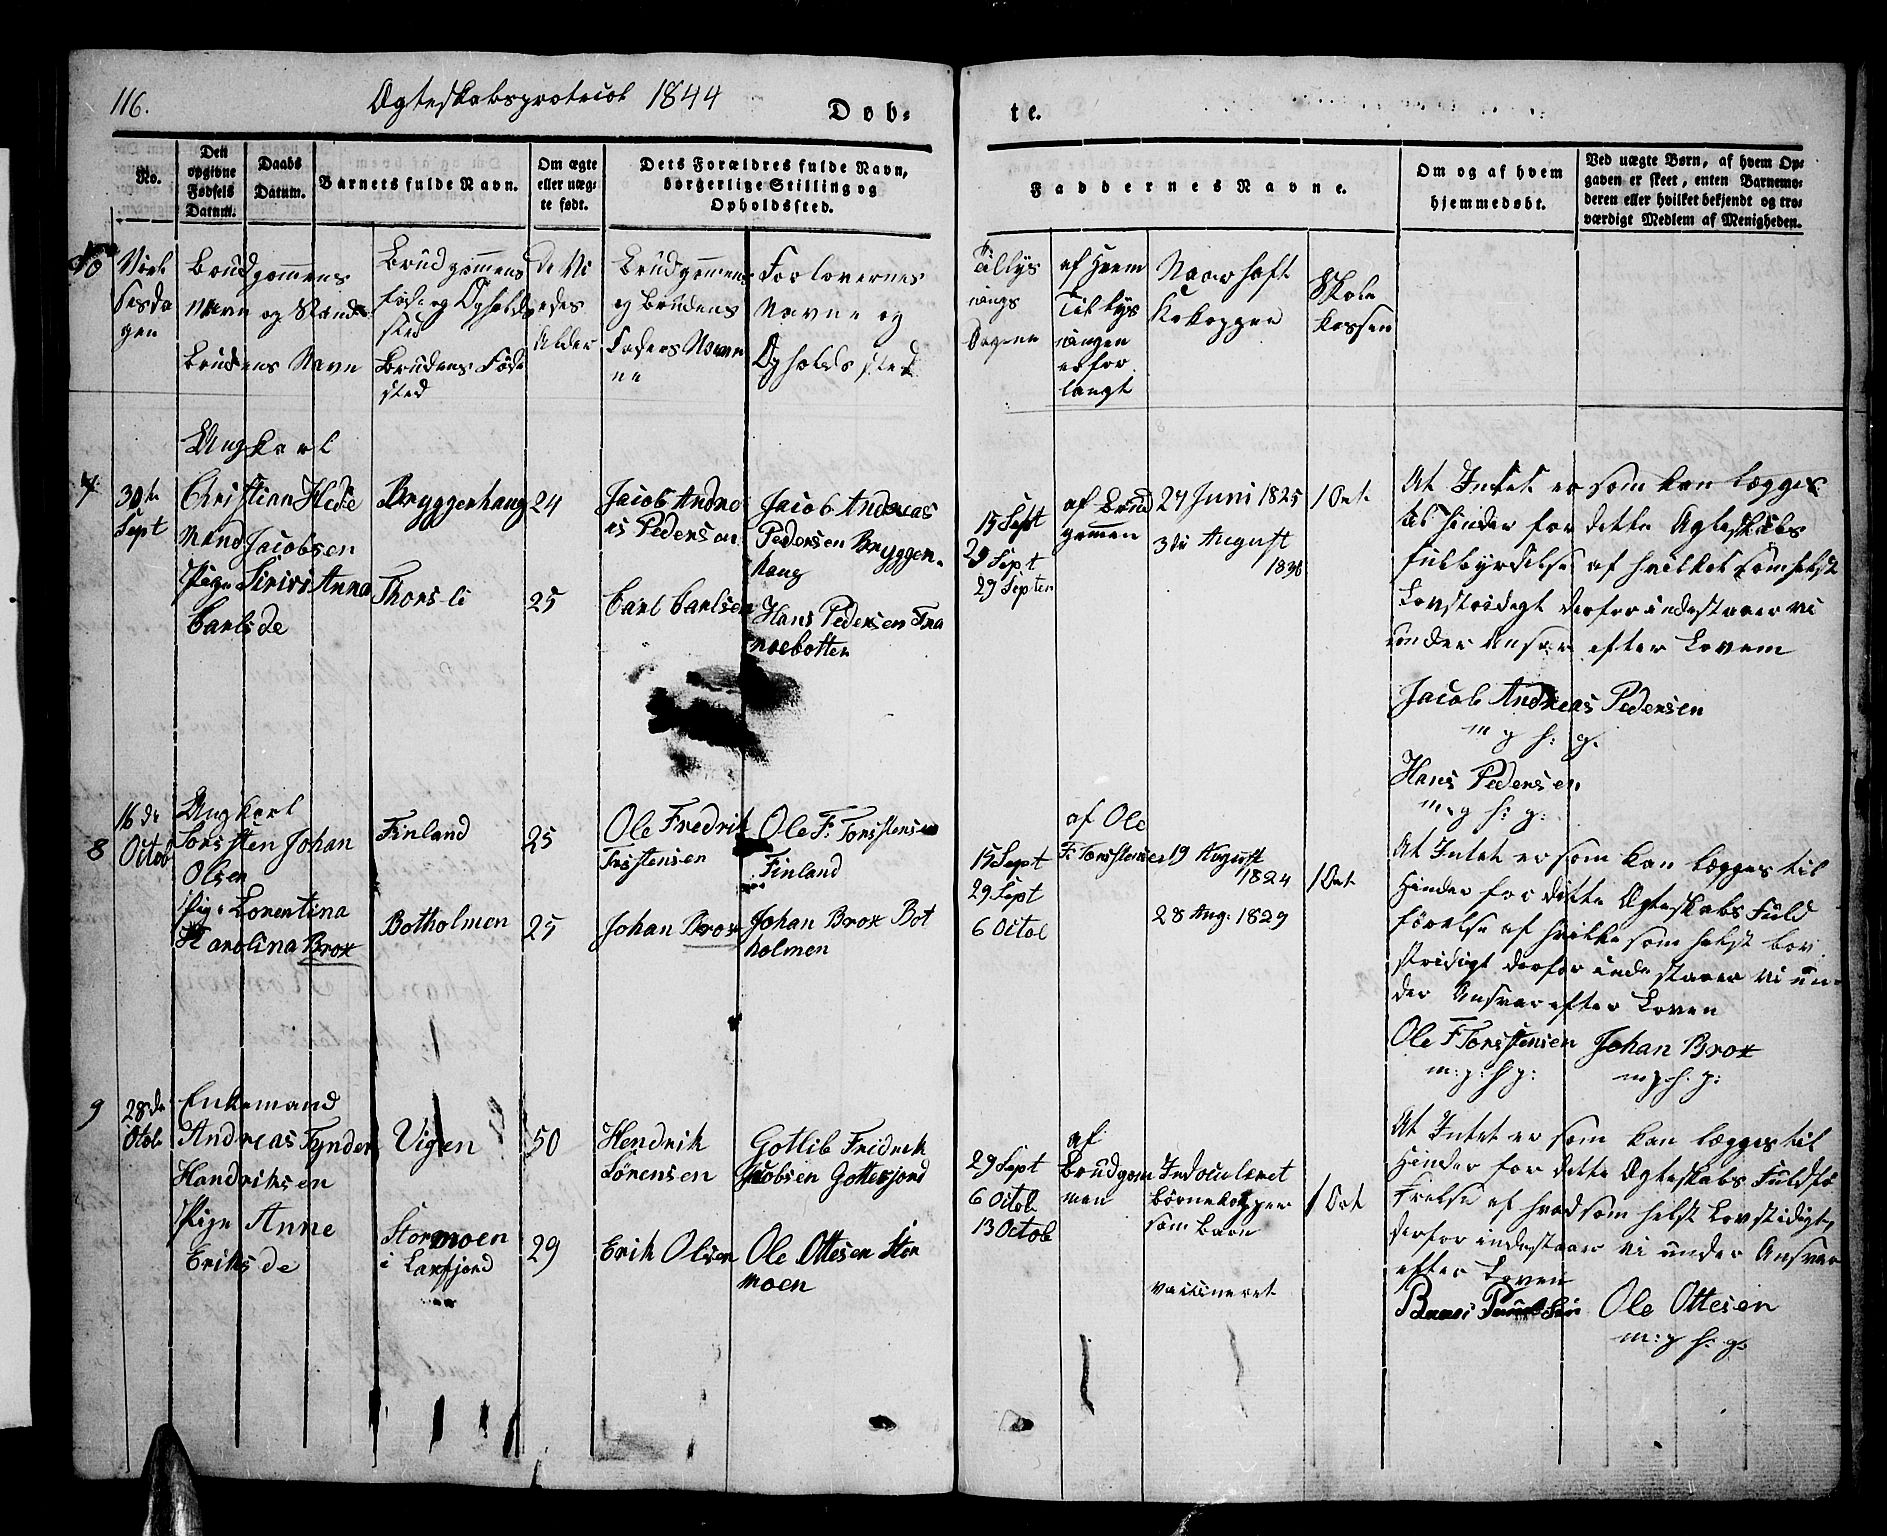 116. Ægteskabsprotocol 1844 Døb- te.
No.
Den opgivne Fødsels Datum.
Daabs Datum.
Barnets fulde Navn.
Om ægte eller uæg- te født.
Dets Forældres fulde Navn, borgerlige Stilling og Opholdssted.
Faddernes Navne.
Om og af hvem hjemmedøbt.
Ved uægte Børn, af hvem Op- gaven er skeet, enten Barnemo- deren eller hvilket bekjendt og tro- værdigt Medlem af Menigheden.
No
Viel sesda gen
Brudgommens Navn og Stand
Brudens Navn
Brudgommens Føde og Opholds sted
Brudens Føde sted
De Vi edes Alder
Brudgommens og Brudens Faders Navn ne
Forlovernes Navne og Opholdssted
Tillys nings Dagene
af Hvem Tillys ningen er for langt
Naar haft Kokopper
Skole kassen
7
30te Sept
Ungkarl
Christian Hede
Mand Jacobsen
Pige Sirivi Anna
Carlsde
Bryggenhaug
Thorsli
24
25
Jacob Andre as Pedersen
Carl Carlsen
Jacob Andreas Pedersen Bryggen- haug
Hans Pedersen Fra noebotten
15 Sept
29 Sept
29 Septen
af Brud gommen
27 Juni 1825
3die August 1836
1 Ort
At Intet er som kan lægges
til hinder for dette Ægteskabs
fulbyrdelse af hvilket somhelst
Lovstridigt derfor indestaaer vi
under Ansvar efter Lovem
Jacob Andreas Pedersen
m p h: g.
Hans Pedersen
m: p h: g:
8
16 de Octob
Ungkarl
Torsten Johan
Olsen
Pige Lorentina
Karolina Brox
Finland
Botholmen
25
25
Ole Fredrik Torstensen
Johan Brox
Ole F. Torstensen Finland
Johan Brox Bot holmen
15 Sept
29 Sept
6 Octob
af Ole F. Torstensen
19 August 1824
28 Aug: 1829
1 Ort
At Intet er som kan lægges til
Hinder for dette Ægteskabs Fuld
førelse af hvilke som helst lov
stridigt derfor indestaaer vi un-
der Ansvar efter Loven
Ole F Torstensen Johan Brox
m: p: h g: m p. h. g:
9
28de Octob
Enkemand
Andreas Tynder
Handriksen
Pige Anne
Eriks de
Vigen
Stormoen i Laxfjord
50
29
Hendrik Sørensen
Erik Olsen
Gotlib Fridrik Jacobsen Gottesjord
Ole Ottesen Stor moen
29 Sept
6 Octob
13 Octob
af Brudgom men
Indoculeret børnekopper som barn
vaccineret
1 Ort
At Intet er som kan lægges til
Hinder for dette Ægteskabs Fuldfø
relse af hvad som helst Lovstridigt
derfor indestaaer vi under Ansvar
efter Loven
Ole Ottesen
m: p h: g.